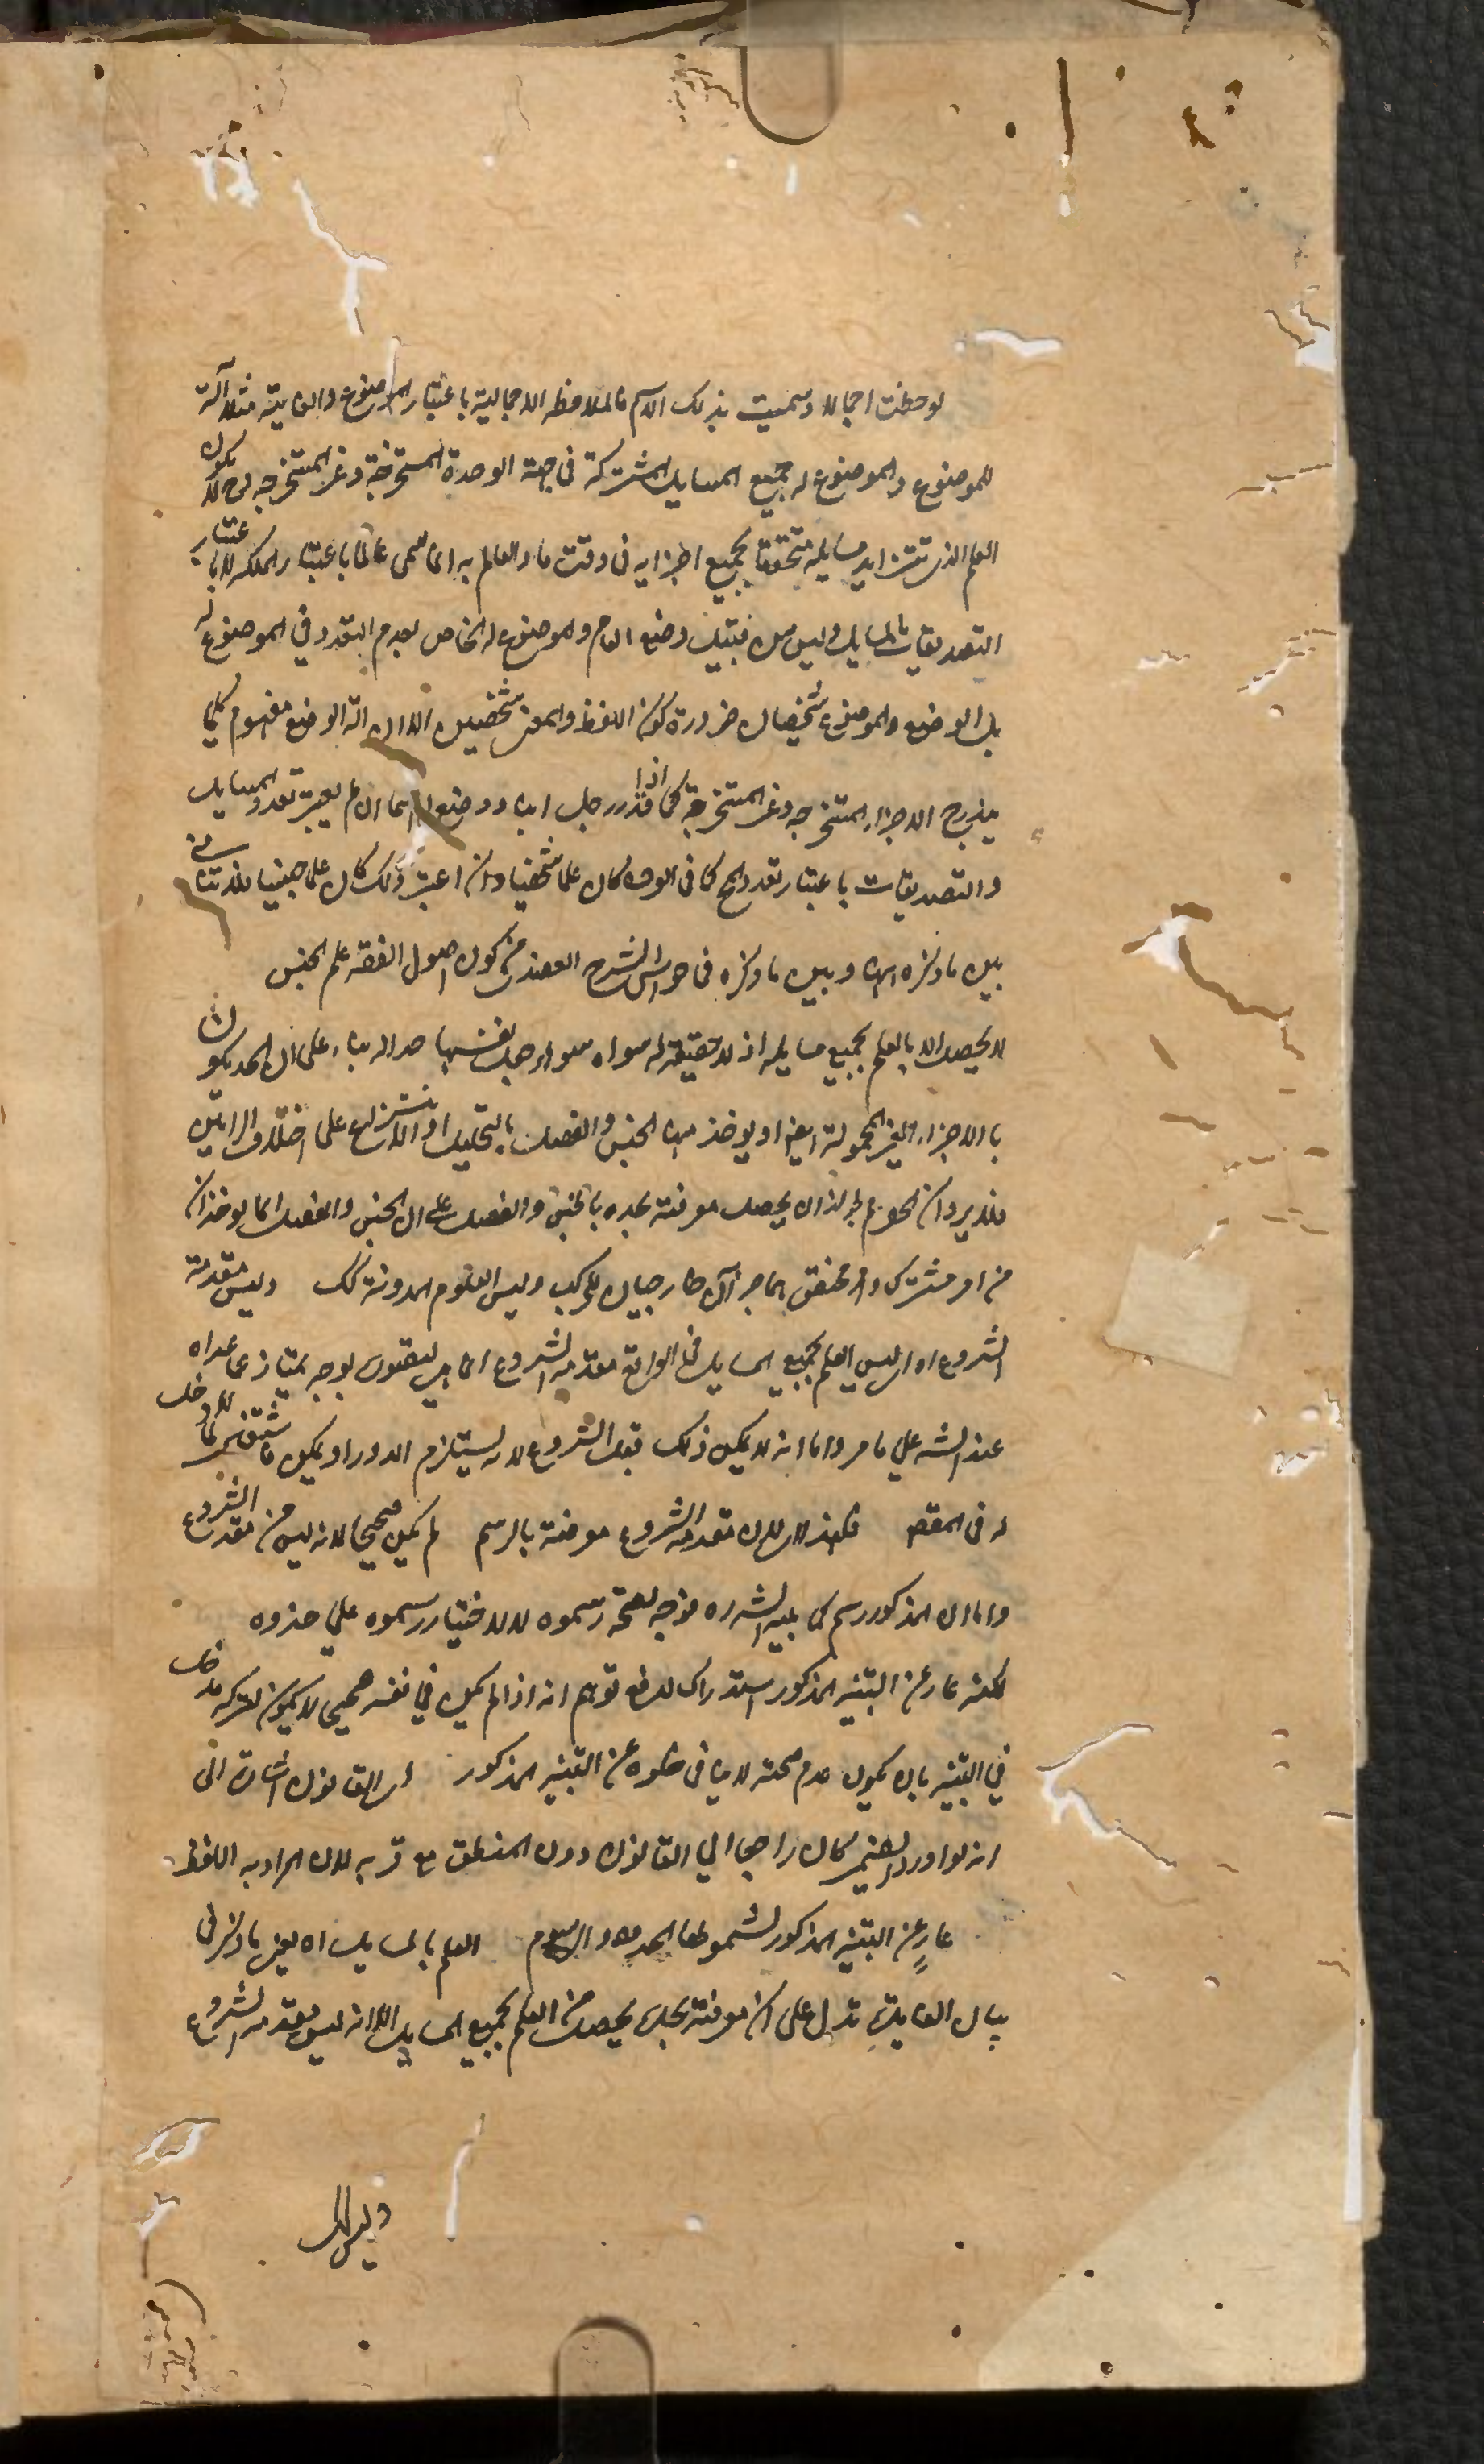 لوحظت اجمالا وسميت بذلك الاسم فالملاحظه الاجمالية باعتبار الموضوع والغاية مثلا آلة
للموضوع والموضوع له جميع المسايل المشتركة فى جهة الوحدة المستخرجة وغير المستخرجه فح لا يكون
العلم الذى تتزايد مسايله متحققا بجميع اجزايه فى وقت ما والعالم به انما سمى عالما باعتبار الملكه لا باعتبار
التصديقات بالمسايل وليس من قبيل وضع العام والموضوع له الخاص لعدم التعدد في الموضوع له
بل الوضع والموضوع شخصان ضرورة كون اللفظ والمعنى شخصين الا ان آلة الوضع مفهوم كلي
يندرج الاجزاء المستخرجه وغير المستخرجة كما اذا قدر رجل ابنه ووضع له اسما ان لم يعتبر تعدد المسايل
والتصديقات باعتبار تعدد المحل كما فى الوحدة كان علما شخصيا وان اعتبر ذلك كان علما جنسيا فلا تنافى
بين ما ذكره ههنا وبين ما ذكره فى حواشى الشرح العضدى من كون اصول الفقه علم الجنس
لا يحصل الا بالعلم بجميع مسايله اذ لا حقيقة له سواه سواء جعل نفسها حدا له بناء على ان الحد يكون
بالاجزاء الغير المحمولة ايضا او يوخذ منها الجنس والفصل بالتحليل او الانتزاع على اختلاف الرايين
فلا يرد ان نحو لجواز ان يحصل معرفته بحده بالجنس والفصل على ان الجنس والفصل انما يوخذان
من امر مشترك وامر مختص هما جزآن خارجيان للمركب وليس العلوم المدونة كك وليس مقدمة
الشروع اه اى ليس العلم بجميع المسايل فى الواقع مقدمة الشروع انما هى التصور بوجه يمتاز عما عداه
عند الشه على ما مر واما انه لا يمكن ذلك قبل الشروع لانه يستلزم الدور او يمكن فلا دخل
له فى المقصد فلهذا لان مقدمه الشروع معرفته بالرسم لم يكن صحيحا لانه ليس من مقدمة الشروع
واما ان المذكور رسم كما بينه الشه ره فوجه لصحة رسموه لا لاختيار رسموه على حدوه
لكنه عار عن التنبيه المذكور استدراك لدفع توهم انه اذا لم يكن في نفسه صحيحا لا يكون لتركه مدخل
في التنبيه بان يكون عدم صحته لا ينافى خلوه عن التنبيه المذكور اى القانون اشارة الى
انه لو اورد الضمير لكان راجعا الي القانون دون المنطق مع قربه لان المراد به اللفظ
عارٍ عن التنبيه المذكور لشمولها الحدود والرسوم العلم بالمسايل اه يعنى ما ذكر فى
بيان الغاية تدل على ان معرفته بحده يحصل من العلم بجميع المسايل الا انه ليس مقدمه الشروع